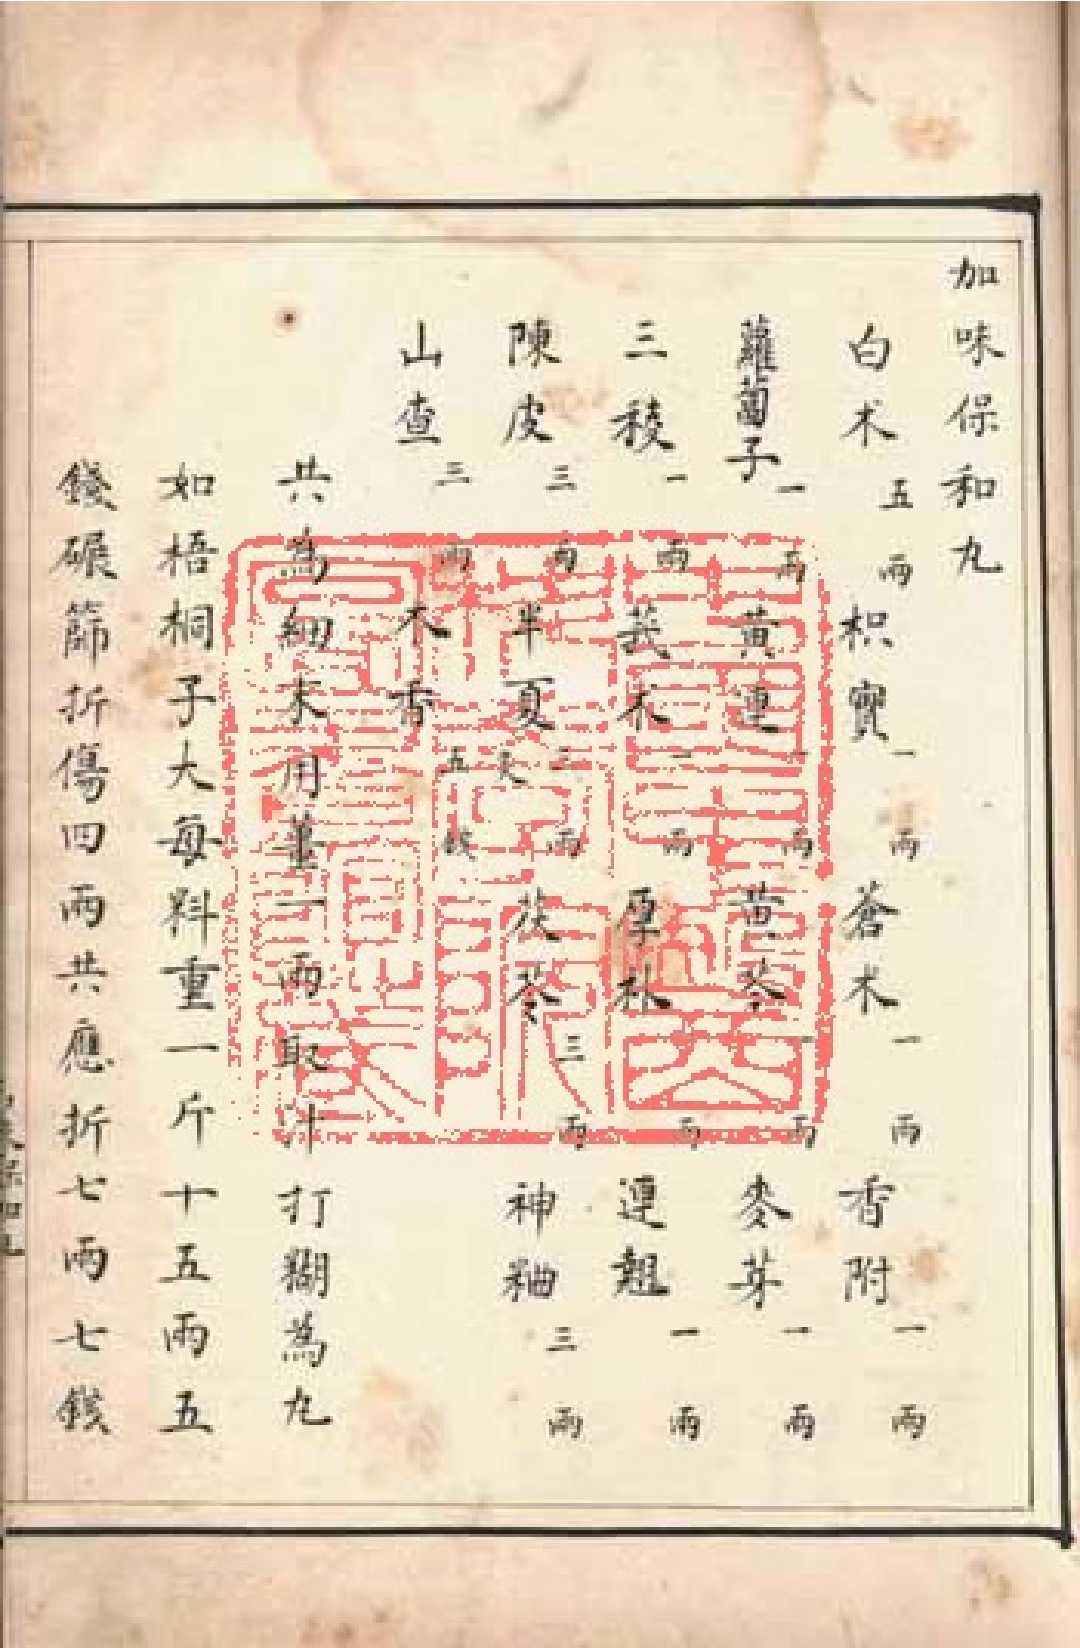 加味保和丸
白术五兩 枳實一兩 蒼术一兩 香附一兩
蘿蔔子一兩 黃連一兩 黃芩一兩 麥芽一兩
三稜一兩 莪术一兩 厚朴一兩 連翹一兩
陳皮三兩 半夏炙三兩 茯苓三兩 神粬三兩
山查三兩 木香五錢
共為細末用薑一兩取汁打糊為丸
如梧桐子大每料重一斤十五兩五
錢碾篩折傷四兩共應折七兩七錢